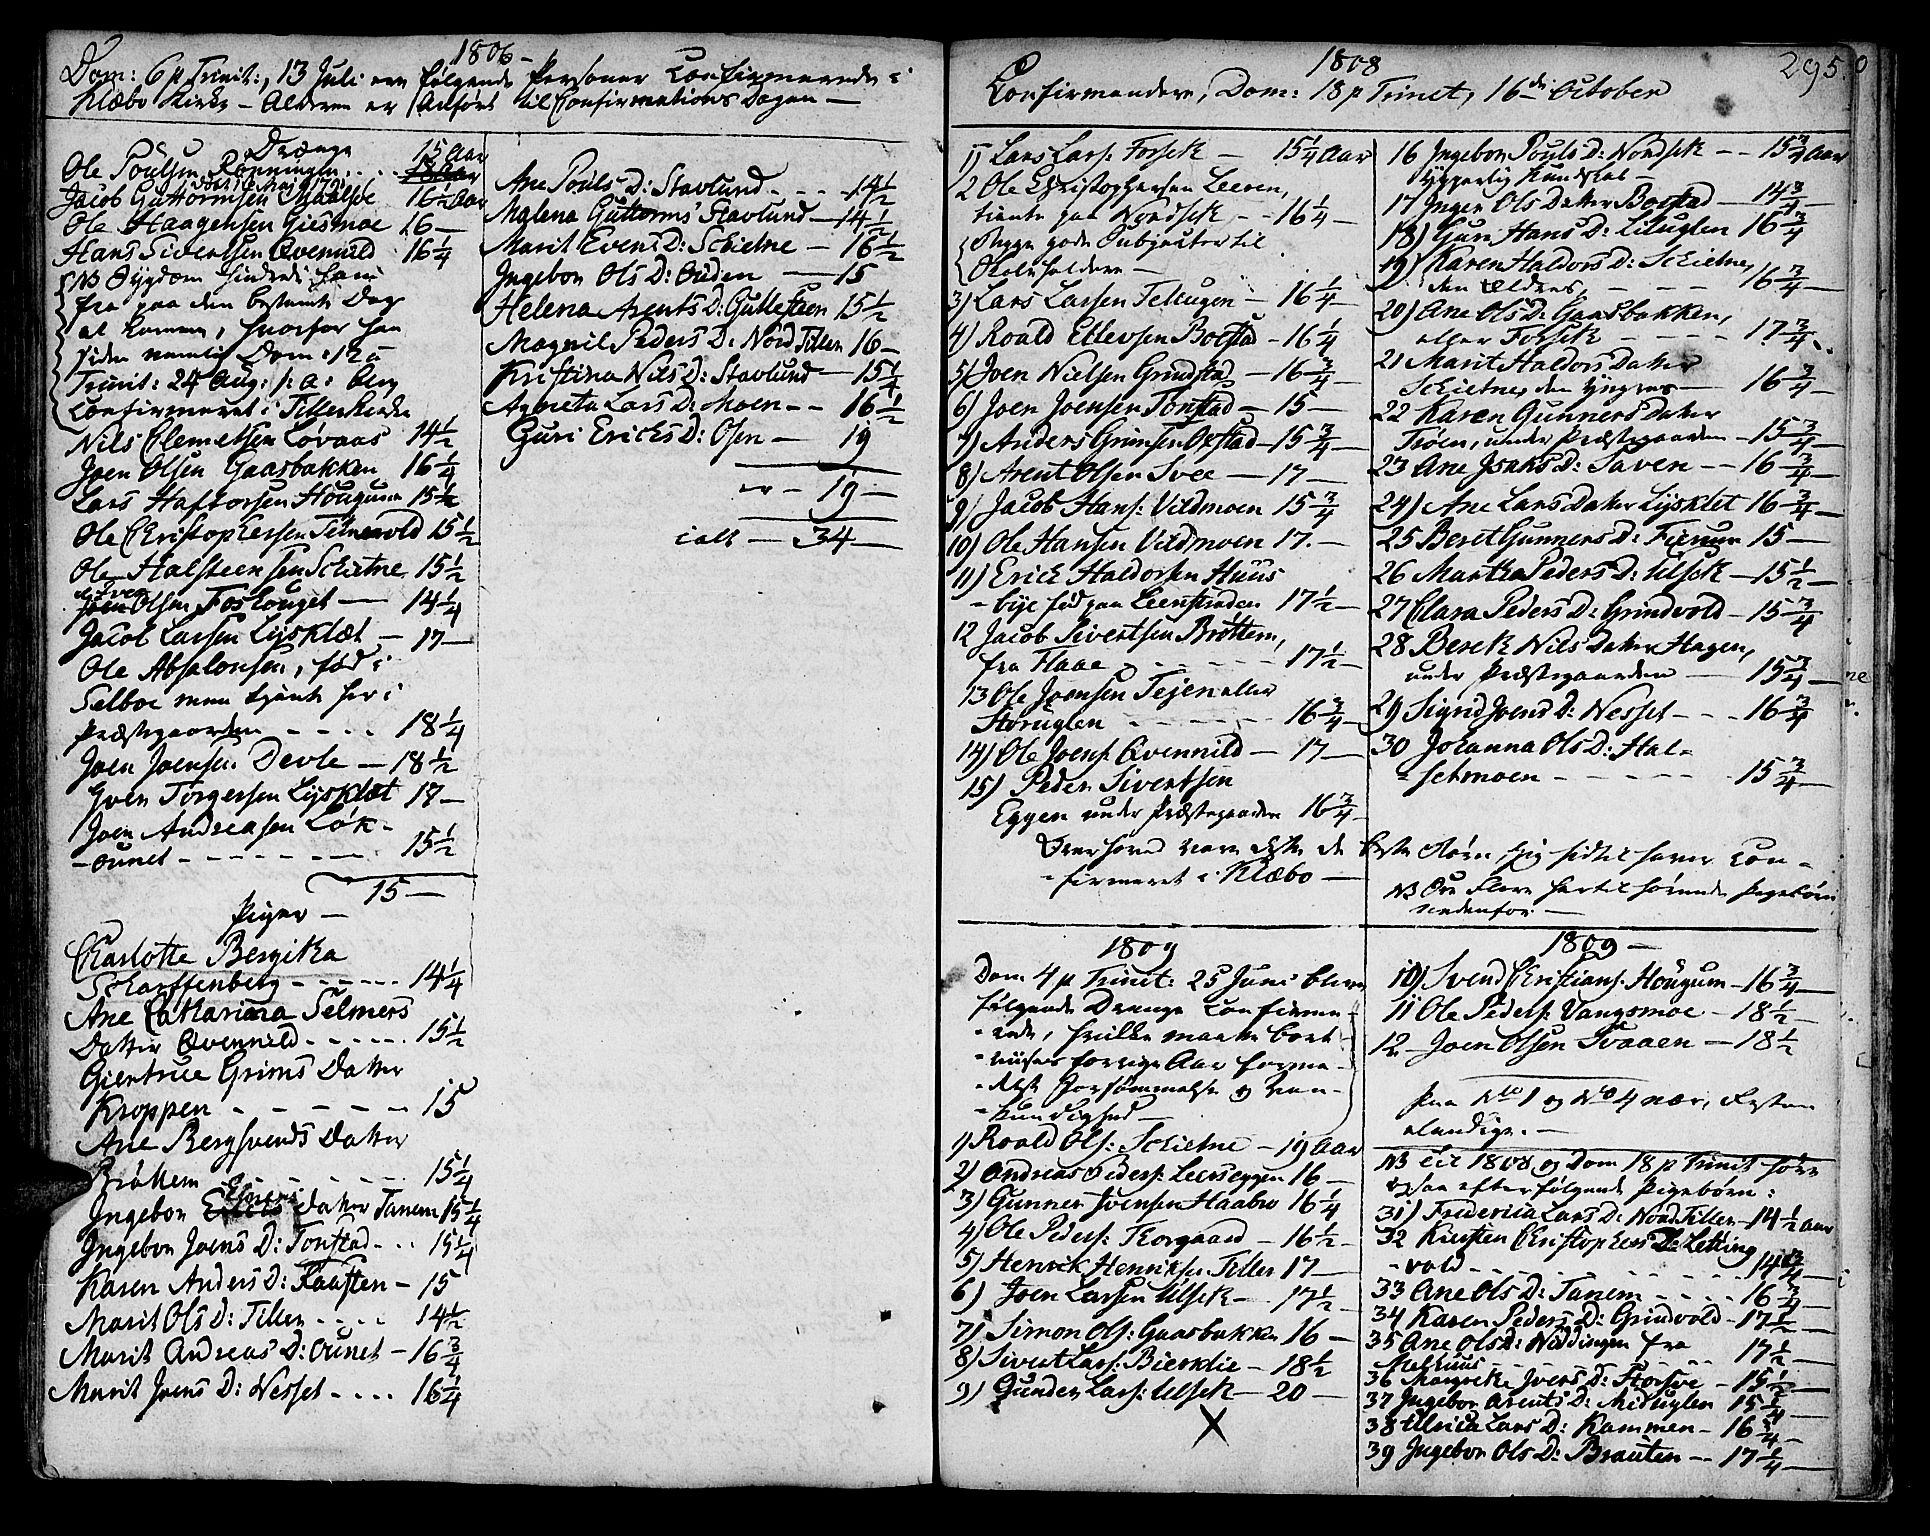 1806 -
Dom: 6 p Trinit:, 13 Juli ere følgende Personer Confirmerede i
Klæbo Kirke - Alderen er Anført til Confirmations Dagen -
Drænge
Ole Poulsen Rönningen . . . 15 Aar
Jacob Guttormsen 16½ Aar
Ole Haagensen Giesmoe 16 -
Hans Sivertsen Qvenild 16¼
NB Sygdom hindrede ham
fra paa den bestemte Dag
at komme, hvorfor han
siden nemlig Dom: 12 p
Trinit: 24 Aug: s: a: blev
Confirmeret i Tiller Kirke
Nils Clemetsen Lövaas 14½
Joen Olsen Gaasbakken 16¼
Lars Haftorsen Hougum 15½
Ole Christophersen Telnesvold 15½
Ole Halsteensen Schietne 15½
Iver
Olsen Foshouget - 14¼
Jacob Larsen Lysklæt - 17 -
Ole Absalonsen, fød i
Selboe men tjente her i
Præstegaarden - - - - 18¼
Joen Joensen Devle - 18½
Iver Torgersen Lysklæt 17 -
Joen Andreasen Løk-
-ounet - - - - - - - 15½
15 -
Piger -
Charlotte Bergitha
Scharffenberg - - - - - 14¼
Ane Catharina Selmers
Datter Qvennild - - - - - 15½
Giertrue Grims Datter
Kroppen - - - - - - 15
Ane Bergsvends Datter
Bröttem - - - - - - 15¼
Ingebor Datter Tanem 15¼
Ingebor Joens D: Tonstad - - - 15¼
Karen Anders D: Raaften - 15
Marit Ols D: Tiller - - - - 14½
Marit Andreas D: Ounet - 16¾
Marit Joens D: Nesset - - - - 16¼
Ane Pouls D: Stavlund - - - - 14½
Malena Guttorms Stavlund - 14½
Marit Evens D: Schietne - 16½
Ingebor Ols D: Ouden - 15
Helena Arents D: Gullesteen 15½
Magnil Peders D: Nord Tiller 16 -
Kristina Nils D: Stavlund - 15¼
Agneta Lars D: Moen - - 16½
Guri Ericks D: Osen - 19
er - 19 -
ialt - 34 -
295
1808
Confirmandere, Dom: 18 p Trinit, 16de October
1) Lars Lars: Forsek - 15¼ Aar
2 Ole Christophersen Leeren,
tiente paa Nordsek - - 16¼
Begge gode Subjecter til
Skoleholdere -
3) Lars Larsen Teleugen - 16¼
4) Roald Ellevsen Bostad - 16¼
5) Joen Nielsen Grindstad - 16¾
6) Joen Joensen Tonstad - 15 -
7) Anders Grimsen Oxstad - 15¾
8) Arent Olsen Svee - 17 -
9) Jacob Hans: Vildmoen 15¾
10) Ole Hansen Vildmoen 17. -
11) Erick Haldorsen Huus
- bye fød paa Leerstranden 17½ -
12 Jacob Sivertsen Bröttem,
fra Flaae - - - - - 17½ -
13 Ole Joensen Tejen eller
Storuglen - - - - - - 16¾ -
14) Ole Joens: Qvennild - 17 -
15) Peder Sivertsen
Eggen under Præstegaarden 16¾ -
16 Ingebor Pouls D: Nordsek - - 15¾ Aar
Ypperlig Kundskab -
17 Inger Ols Datter Bostad - 14¾
18) Guri Hans D: Lilluglen 16¾
19) Karen Haldors D: Schietne,
den Ældres, - - - - 16¾ -
20) Ane Ols D: Gaasbakken,
eller Forsek - - - - - 17¾ -
21 Marit Haldors Datter
Schietne, den Yngres - 16¾ -
22 Karen Gunners Datter
Troen, under Præstegaarden - 15¾ -
23 Ane Isaks D: Saven - - 16¾ -
24) Ane Lars Datter Lysklet 16¾ -
25 Beret Gunners D: Fierem 15 -
26 Martha Peders D: Ulsek - 15½ -
27 Clara Peders D: Grindvold - 15¾
28 Beret Nils Datter Hagen,
under Præstegaarden - 15¾ -
29) Sigrid Joens D: Nesset - - - 16¾
30 Johanna Ols D: Hal-
- setmoen - - - - - - 15¾ -
Overhoved vare dette de beste Børn jeg hidtil haver Con-
- firmeret i Klæbo -
NB Ere Flere hertil hørende Pigebørn
nedenfor -
1809
Dom 4 p Trinit: 25 Juni bleve
følgende Drenge Confirme-
-rede, hvilke maatte bort-
-viises forrige Aar forme-
-delst Forsømmelse og Van-
-kundighed -
1) Roald Ols: Schietne - 19 Aar
2) Andreas Peders: Leerseggen 16 -
3) Gunner Joensen Haabro 16¼
4) Ole Peders: Thorgaard - 16½ -
5) Henrick Henriks: Tiller 17 -
6) Joen Larsen Ulsek - 17½ -
7) Simon Ols: Gaasbakken 16 -
8) Sivert Lars: Bierklie - 18½
9) Gunder Lars: Ulsek - 20 -
X
1809 -
10) Svend Christians: Hougum - 16¾ -
11 Ole Peders: Vangsmoe - 18½ -
12 Joen Olsen Svaaen - 18½
Paa No 1 og No 4 nær, Resten
elendige. -
NB til 1808 og Dom 18 p Trinit høre
ogsaa efterfølgende Pigebørn:
31) Fredericia Lars D: Nord Tiller - 14½ Aar
32 Kirsten Christophers D: Letting
- vold - - - - - - - - 14¾
33 Ane Ols D: Tanem - - - - 16¾
34 Karen Peders D: Grindvold - 17½ -
35 Ane Ols D: Nöddingen fra
Melhuus - - - - - - - 17½ -
36 Margrethe Ivers D: Storsve - 15½ -
37 Ingebor Arents D: Miduglen 15¼
38 Ulrica Lars D: Kammen - 16¾ -
39 Ingebor Ols D: Brauten - - 17¼ -